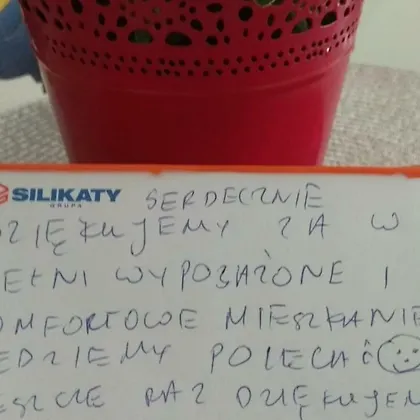 SILIKATY
GRUPA
SERDECZNIE
DZIĘKUJEMY ZA W
EŁNI WYPOSAŻONE I
OMFORTOWE MIESZKANIE
ĘDZIEMY POLECAĆ
ESZCZE RAZ DZIĘKUJEM